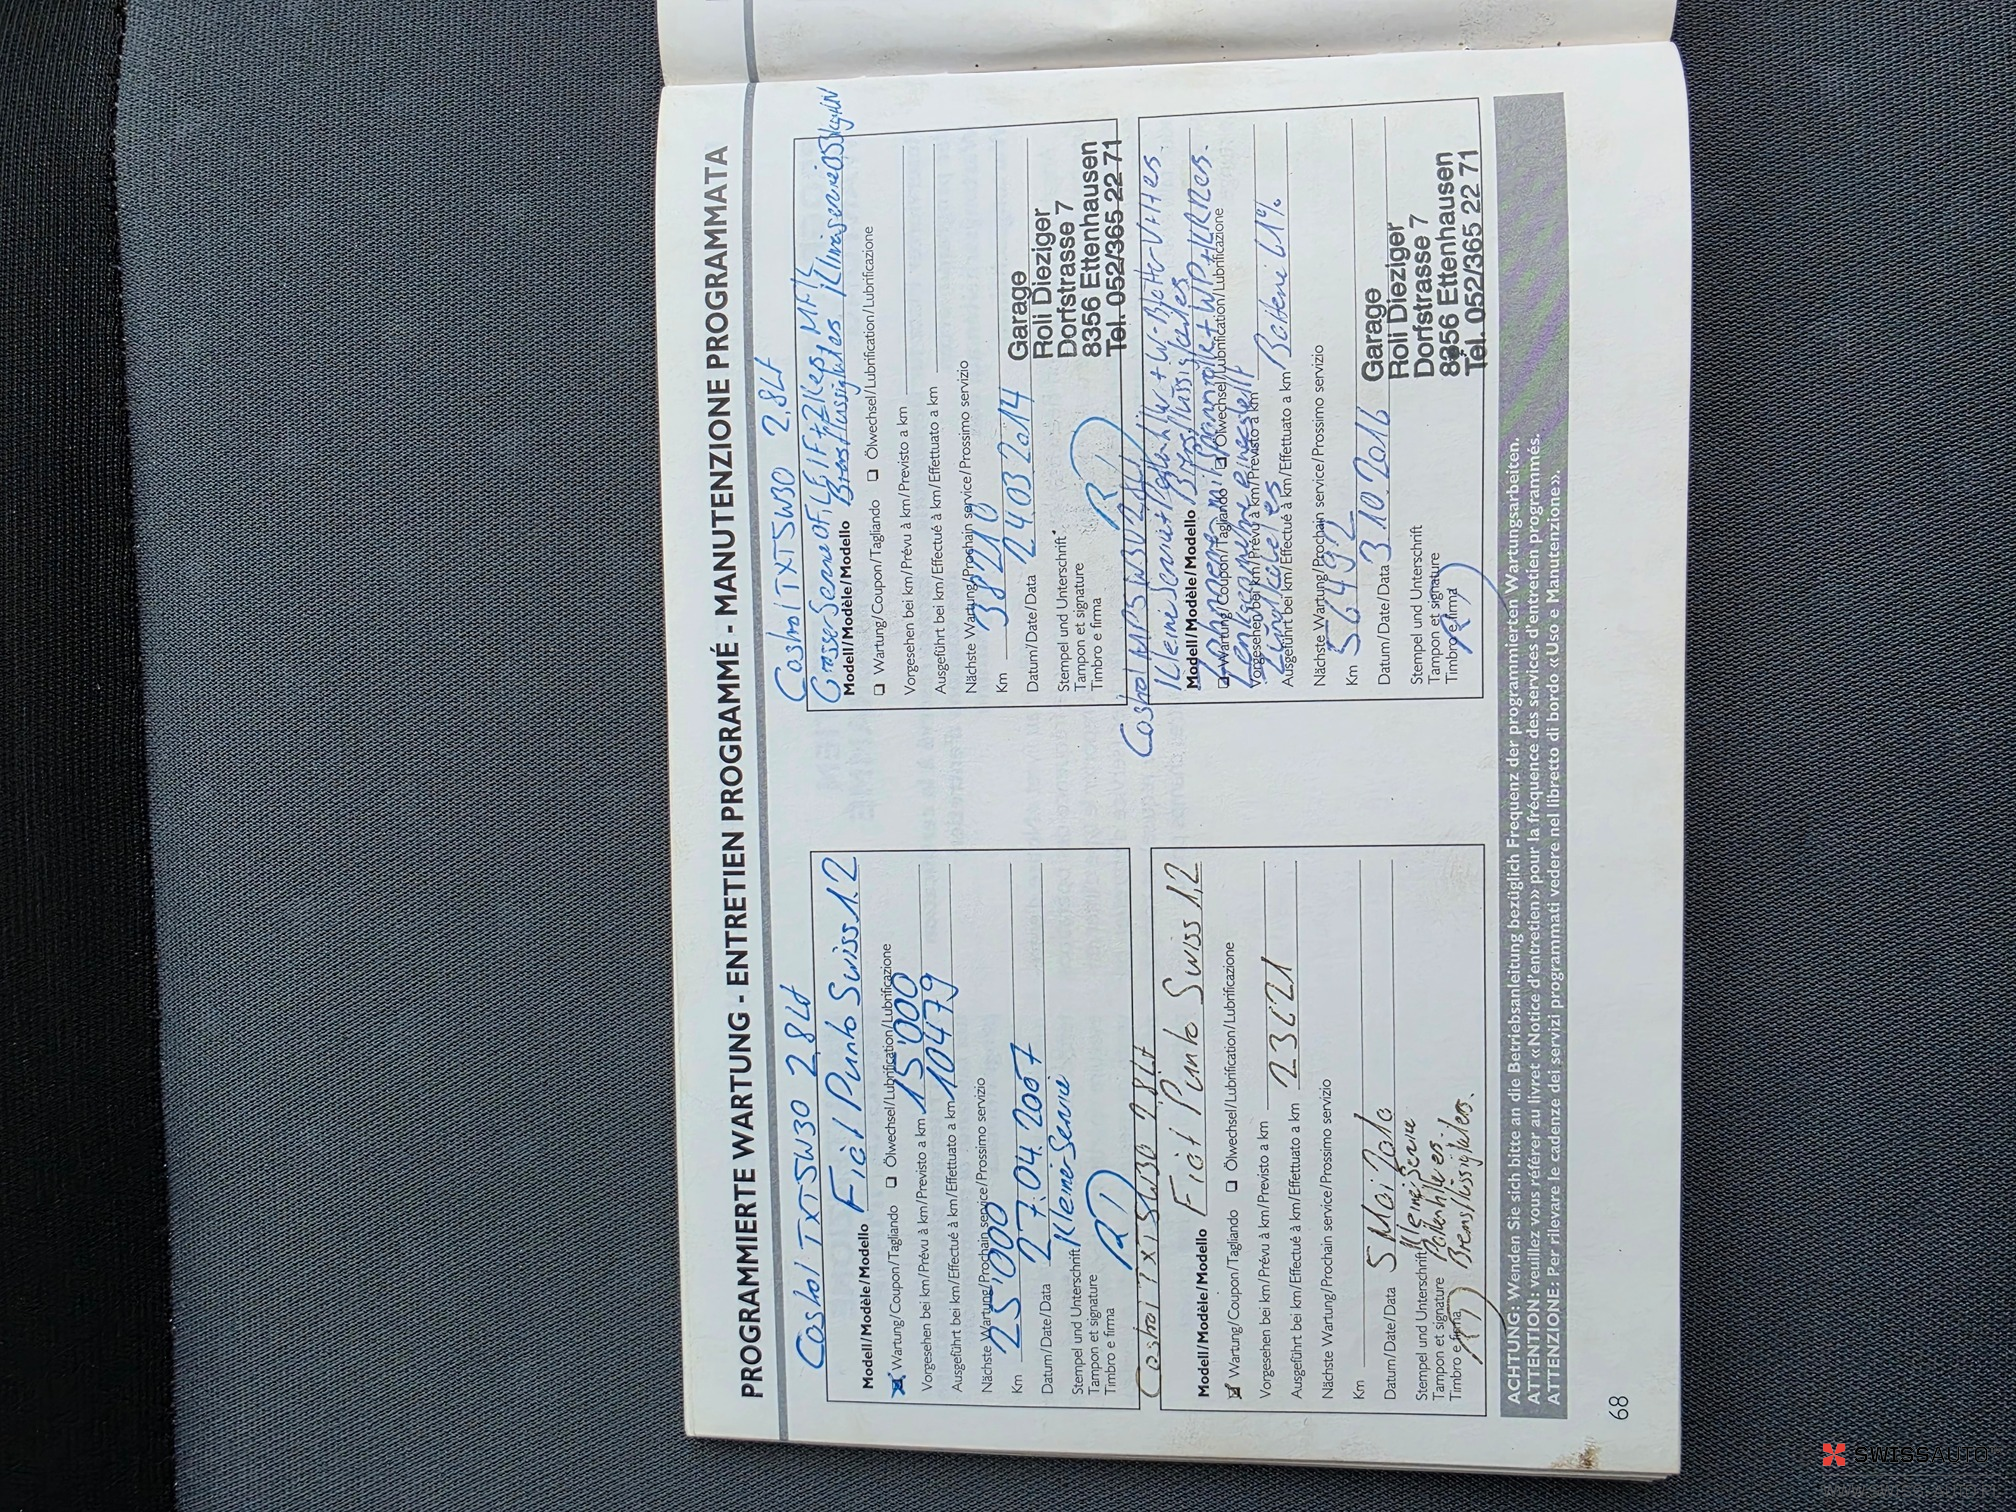 PROGRAMMIERTE WARTUNG - ENTRETIEN PROGRAMMÉ - MANUTENZIONE PROGRAMMATA
Castrol TXT 5W30 2.8Lt
Modell/Modèle/Modello Fiat Punto Swiss 1.2
Wartung/Coupon/Tagliando Ölwechsel/Lubrification/Lubrificazione
Vorgesehen bei km/Prévu à km/Previsto a km 15'000
Ausgeführt bei km/Effectué à km/Effettuato a km 10479
Nächste Wartung/Prochain service/Prossimo servizio
Km 25'000
Datum/Date/Data 27.04.2007
Stempel und Unterschrift Kleiner Service
Tampon et signature
Timbro e firma
Castrol TXT 5W30 2.8Lt
Modell/Modèle/Modello Fiat Punto Swiss 1.2
Wartung/Coupon/Tagliando Ölwechsel/Lubrification/Lubrificazione
Vorgesehen bei km/Prévu à km/Previsto a km
Ausgeführt bei km/Effectué à km/Effettuato a km
Nächste Wartung/Prochain service/Prossimo servizio
Km
Datum/Date/Data 5 Mai
Stempel und Unterschrift Service
Tampon et signature
Timbro e firma
Castrol TXT 5W30 2.8Lt
Grosser Service
Modell/Modèle/Modello
Wartung/Coupon/Tagliando Ölwechsel/Lubrification/Lubrificazione
Vorgesehen bei km/Prévu à km/Previsto a km
Ausgeführt bei km/Effectué à km/Effettuato a km
Nächste Wartung/Prochain service/Prossimo servizio
Km 38210
Datum/Date/Data 24 03 2014
Stempel und Unterschrift
Tampon et signature
Timbro e firma
Garage
Roli Dieziger
Dorfstrasse 7
8356 Ettenhausen
Tel. 052/365 22 71
Castrol
Modell/Modèle/Modello
Wartung/Coupon/Tagliando Ölwechsel/Lubrification/Lubrificazione
Vorgesehen bei km/Prévu à km/Previsto a km
Ausgeführt bei km/Effectué à km/Effettuato a km Batterie
Nächste Wartung/Prochain service/Prossimo servizio
Km 56492
Datum/Date/Data 3.10.2016
Stempel und Unterschrift
Tampon et signature
Timbro e firma
Garage
Roli Dieziger
Dorfstrasse 7
8356 Ettenhausen
Tel. 052/365 22 71
ACHTUNG: Wenden Sie sich bitte an die Betriebsanleitung bezüglich Frequenz der programmierten Wartungsarbeiten.
ATTENTION: veuillez vous référer au livret «Notice d'entretien» pour la fréquence des services d'entretien programmés.
ATTENZIONE: Per rilevare le cadenze dei servizi programmati vedere nel libretto di bordo «Uso e Manutenzione».
68
SWISSAUTO